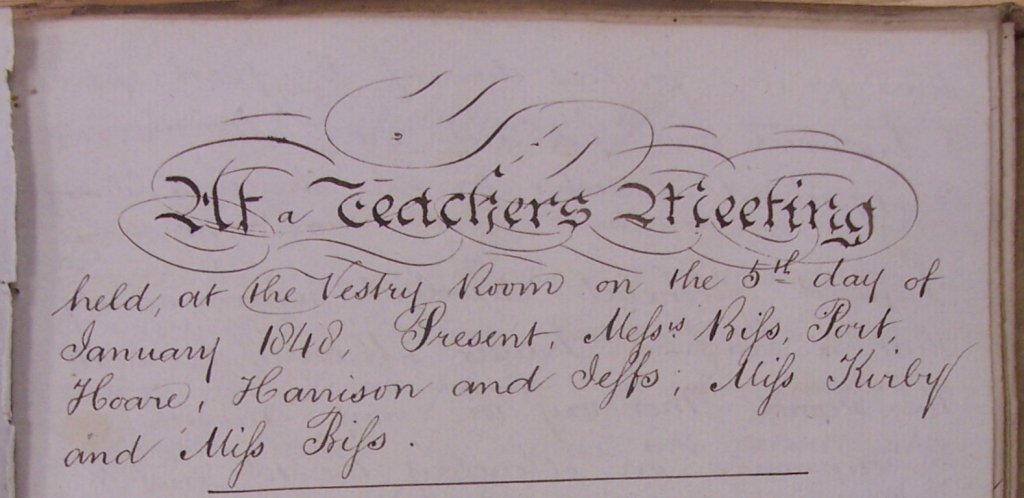 At a Teachers Meeting
held, at the Vestry Room on the 5th day of
January 1848, Present, Messrs Biss, Port,
Hoare, Harrison and Jeffs; Miss Kirby
and Miss Biss.